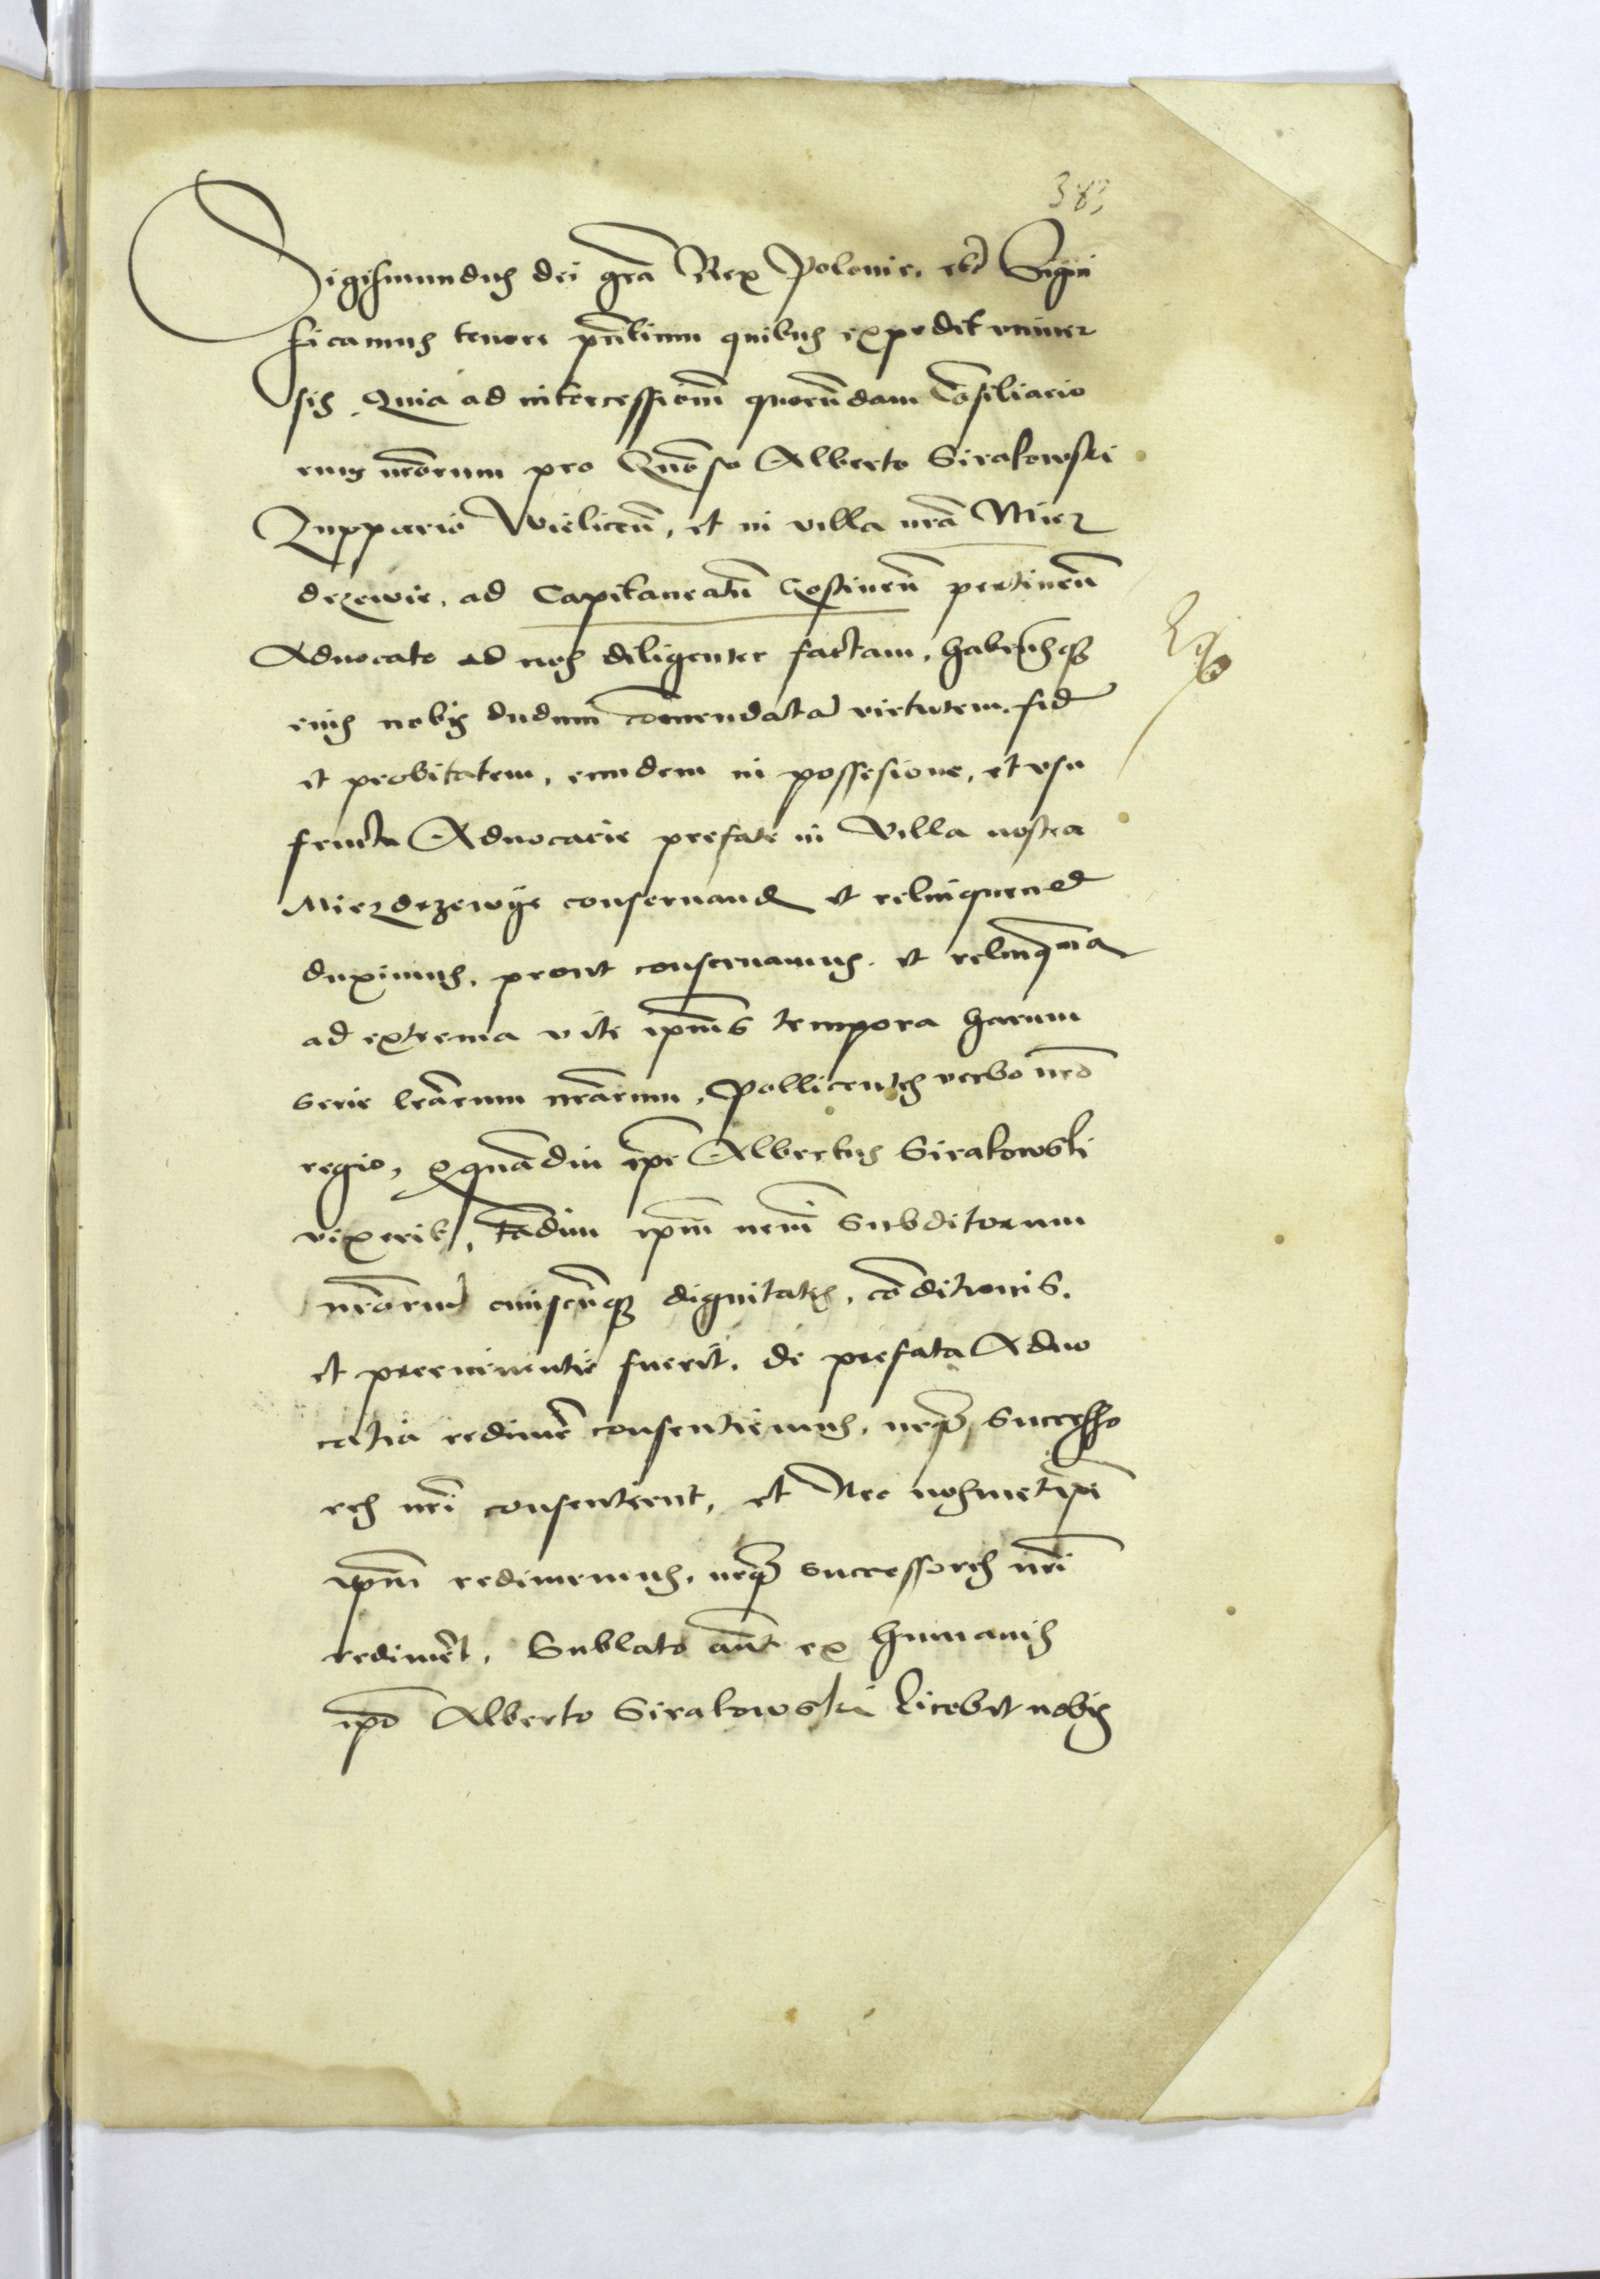 383
Sigismundus dei gra Rex Polonie. etc Signi
ficamus tenore pntium quibus expedit univer
sis, Quia ad intercessionem quorundam Consiliario
rum nrorum pro Alberto Sirakowski
Zuppario Wielicen, et in villa nra Miez
drzewie, ad Capitaneatu Costinen pertinen
Advocato ad nos diligenter factam, habentesqz
eius nobis dudum comendata virtutem, fid
et probitatem, eundem in possesione, et usu
fructu Advocacie prefate in Villa nostra
Miezdrzewye conservand et relinquend
duximus, prout conservamus. et relinqma
ad extrema vite ipius tempora harum
serie lrarum nrarum, Pollicentes verbo nro
regio, quamdiu ipe Albertus Sirakowski
vixerit, tadiu ipm nemi Subditorum
nrorum cuiuscunqz dignitatis, conditionis.
et preeminentie fuerit, de prefata Advo
catia redimere consentiemus, neqz Successo
res nri consentient, et Nec nosmetipi
ipm redimemus, neqz successores nri
rediment, Sublato aut ex humanis
ipo Alberto Sirakowski licebit nobis